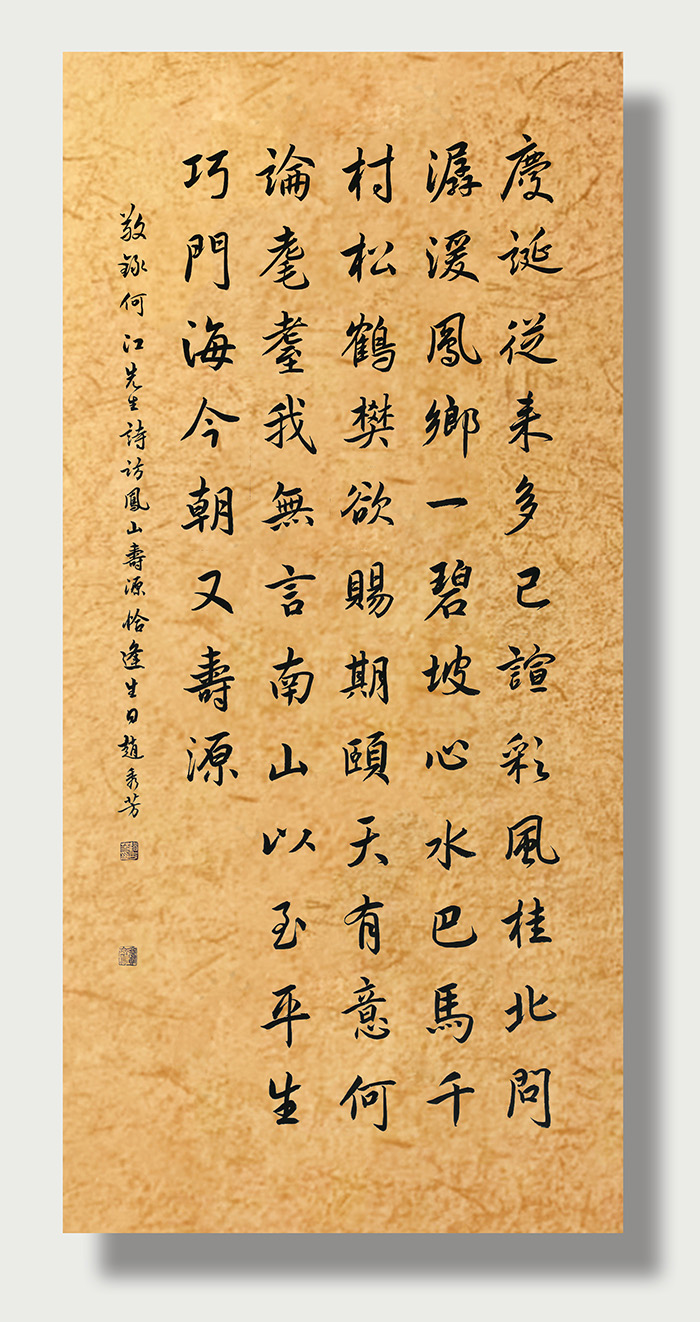 慶誕從来多已諠彩風桂北問
潺湲鳳鄉一碧坡心水巴馬千
村松鶴樊欲賜期頤天有意何
論耄耋我無言南山以至平生
巧門海今朝又壽源
敬録何江先生詩訪鳳山壽源恰逢生日趙秀芳